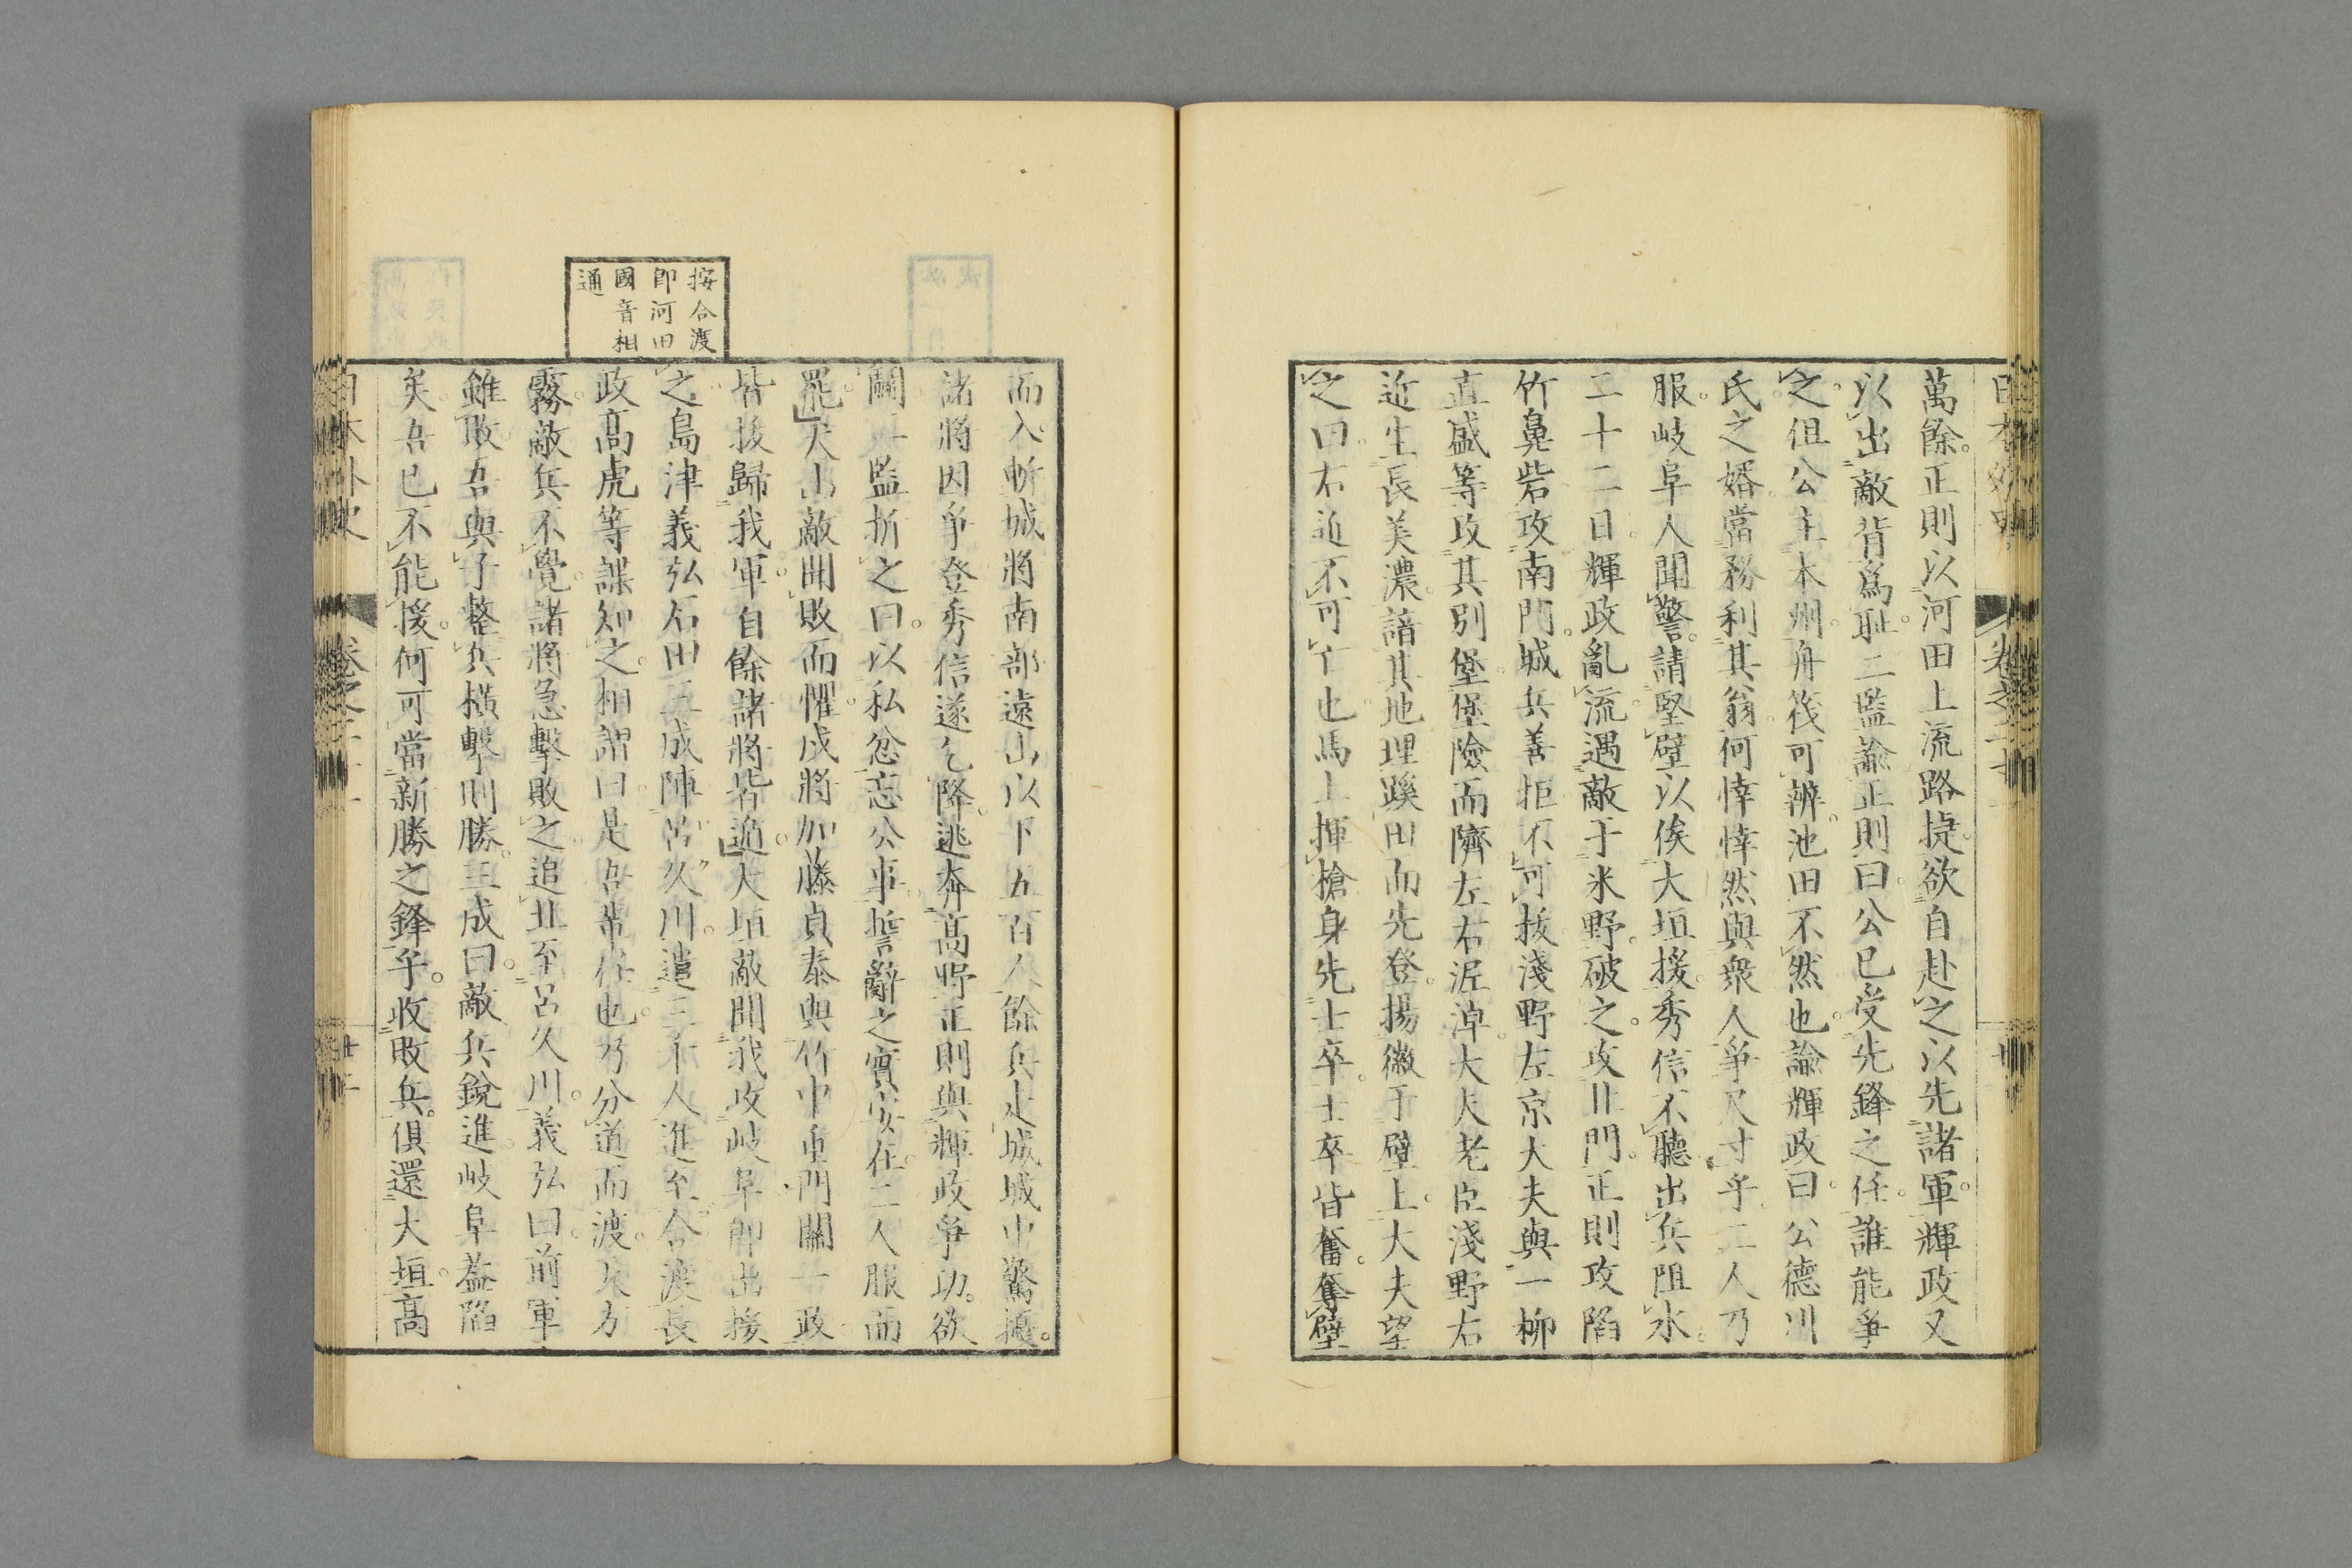 日本外史
卷之二十
萬餘。正則以河田上流路捷。欲自赴之以先諸軍。輝政又
以出敵背爲耻。二監諭正則曰。公已受先鋒之任。誰能爭
之。但公主本州。舟筏可辨。池田不然也。諭輝政曰。公德川
氏之婿。當務利其翁。何悻悻然與衆人爭尺寸乎。二人乃
服。岐阜人聞警。請堅壁以俟大垣援。秀信不聽。出兵阻水。
二十二日。輝政亂流。遇敵于米野。破之。攻北門。正則攻陷
竹鼻砦。攻南門。城兵善拒。不可拔。淺野左京大夫與一柳
直盛等攻其別堡。堡險而隮。左右泥淖。大夫老臣淺野右
近生長美濃。諳其地理。蹊田而先登。揚徽于壁上。大夫望
之曰。右近不可亡也。馬上揮槍。身先士卒。士卒皆奮。奪壁
而入。斬城將南部遠山以下五百人。餘兵走城。城中驚擾。
諸將因爭登。秀信遂乞降。逃奔高野。正則與輝政爭功。欲
鬭。二監折之曰。以私忿忘公事。誓辭之實安在。二人服而
罷。犬山敵聞敗而懼。戍將加藤貞泰與竹中重門關一政
皆拔歸我軍。自餘諸將皆逃。大垣敵聞我攻岐阜。卽出援
之。島津義弘石田三成陣呂久川。遣三千人進至合渡。長
政高虎等諜知之。相謂曰。是吾輩任也。乃分道而渡。天方
霧。敵兵不覺。諸將急擊敗之。追北至呂久川。義弘曰。前軍
雖敗。吾與子整兵橫擊則勝。三成曰。敵兵銳進。岐阜葢陷
矣。吾已不能援。何可當新勝之鋒乎。收敗兵。俱還大垣。高
按合渡
卽河田
國音相
通
日本外史
卷之二十
廿二